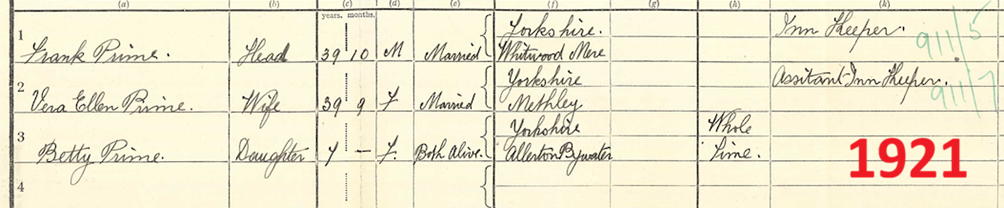 (a) (b) (c) (d) (e) (f) (g) (h) (k)
years. months.
1 Yorkshire. Inn Keeper.
Frank Prime. Head 39 10 M Married Whitwood Mere 911/5
2 Yorkshire Assitant Inn Keeper.
Vera Ellen Prime. Wife 39 9 F Married Methley 911/7
3 Yorkshire Whole
Betty Prime. Daughter 7 — F. Both Alive. Allerton Bywater Time.
1921
4